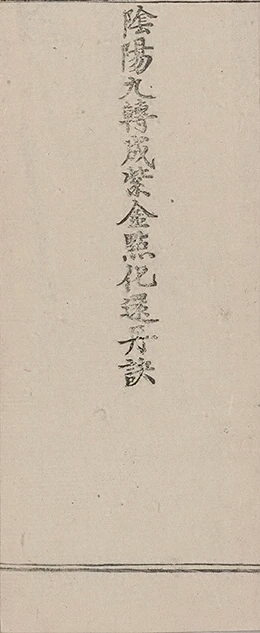 陰陽九轉成紫金點化還丹訣